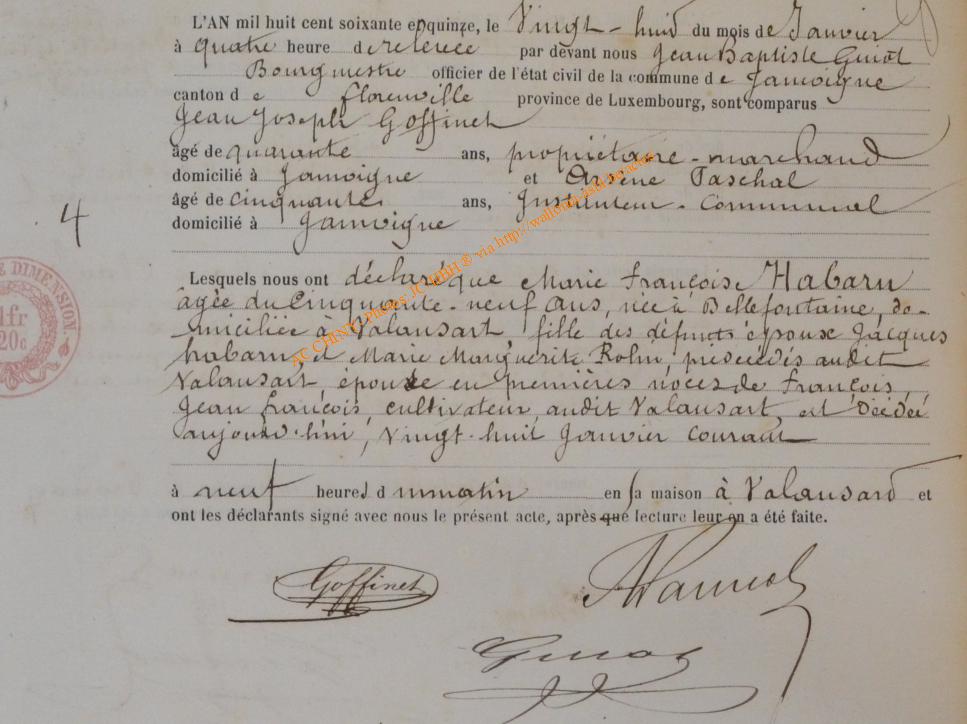 L'AN mil huit cent soixante et quinze, le Vingt-huit du mois de Janvier
à quatre heure de relevée par devant nous Jean Baptiste Guiot
Bourgmestre officier de l'état civil de la commune de Jamoigne
canton de Florenville province de Luxembourg, sont comparus
Jean Joseph Goffinet
âgé de quarante ans, propriétaire-marchand
domicilié à Jamoigne et Arsène Paschal
âgé de cinquante ans, Instituteur-Communal
domicilié à Jamoigne
4
DIMENSION.
1fr
20c
Lesquels nous ont déclaré que Marie Françoise Habaru
âgée du Cinquante-neuf ans, née à Bellefontaine, do-
miciliée à Valansart, fille des défunts époux Jacques
habaru et Marie Marguerite Rolin, prédécédés audit
Valansart, épouse en premières noces de François,
Jean François, cultivateur, audit Valansart, est décédée
aujourd'hui, vingt-huit Janvier courant
à neuf heures du matin en sa maison à Valansard et
ont les déclarants signé avec nous le présent acte, après que lecture leur en a été faite.
Goffinet
Guiot
AC CHINY Photos JCHBH ® via http://wallonia.asbl.be/actes